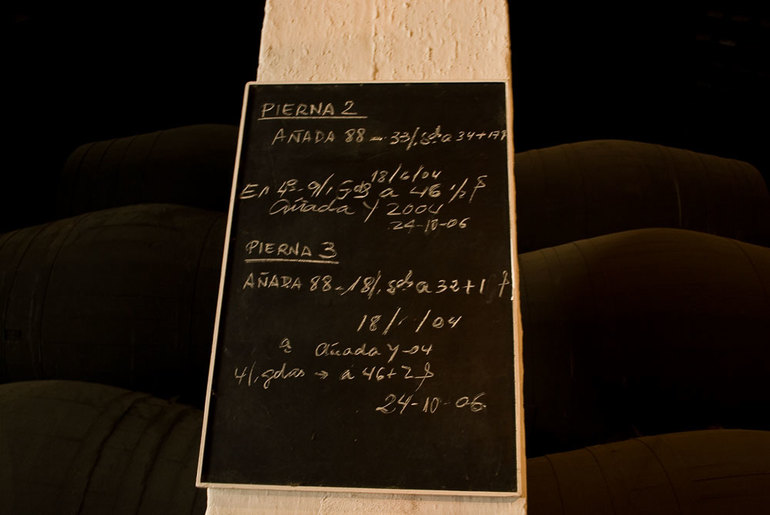 PIERNA 2
AÑADA 88 - 33/, a 34+17
18/6/04
En 4ª - 9/, a 46 1/2
Añada Y 2004
24-10-06
PIERNA 3
AÑADA 88 - 18/, a 32+1
18/ /04
a Añada Y-04
4/, gdas → a 46+2
24-10-06